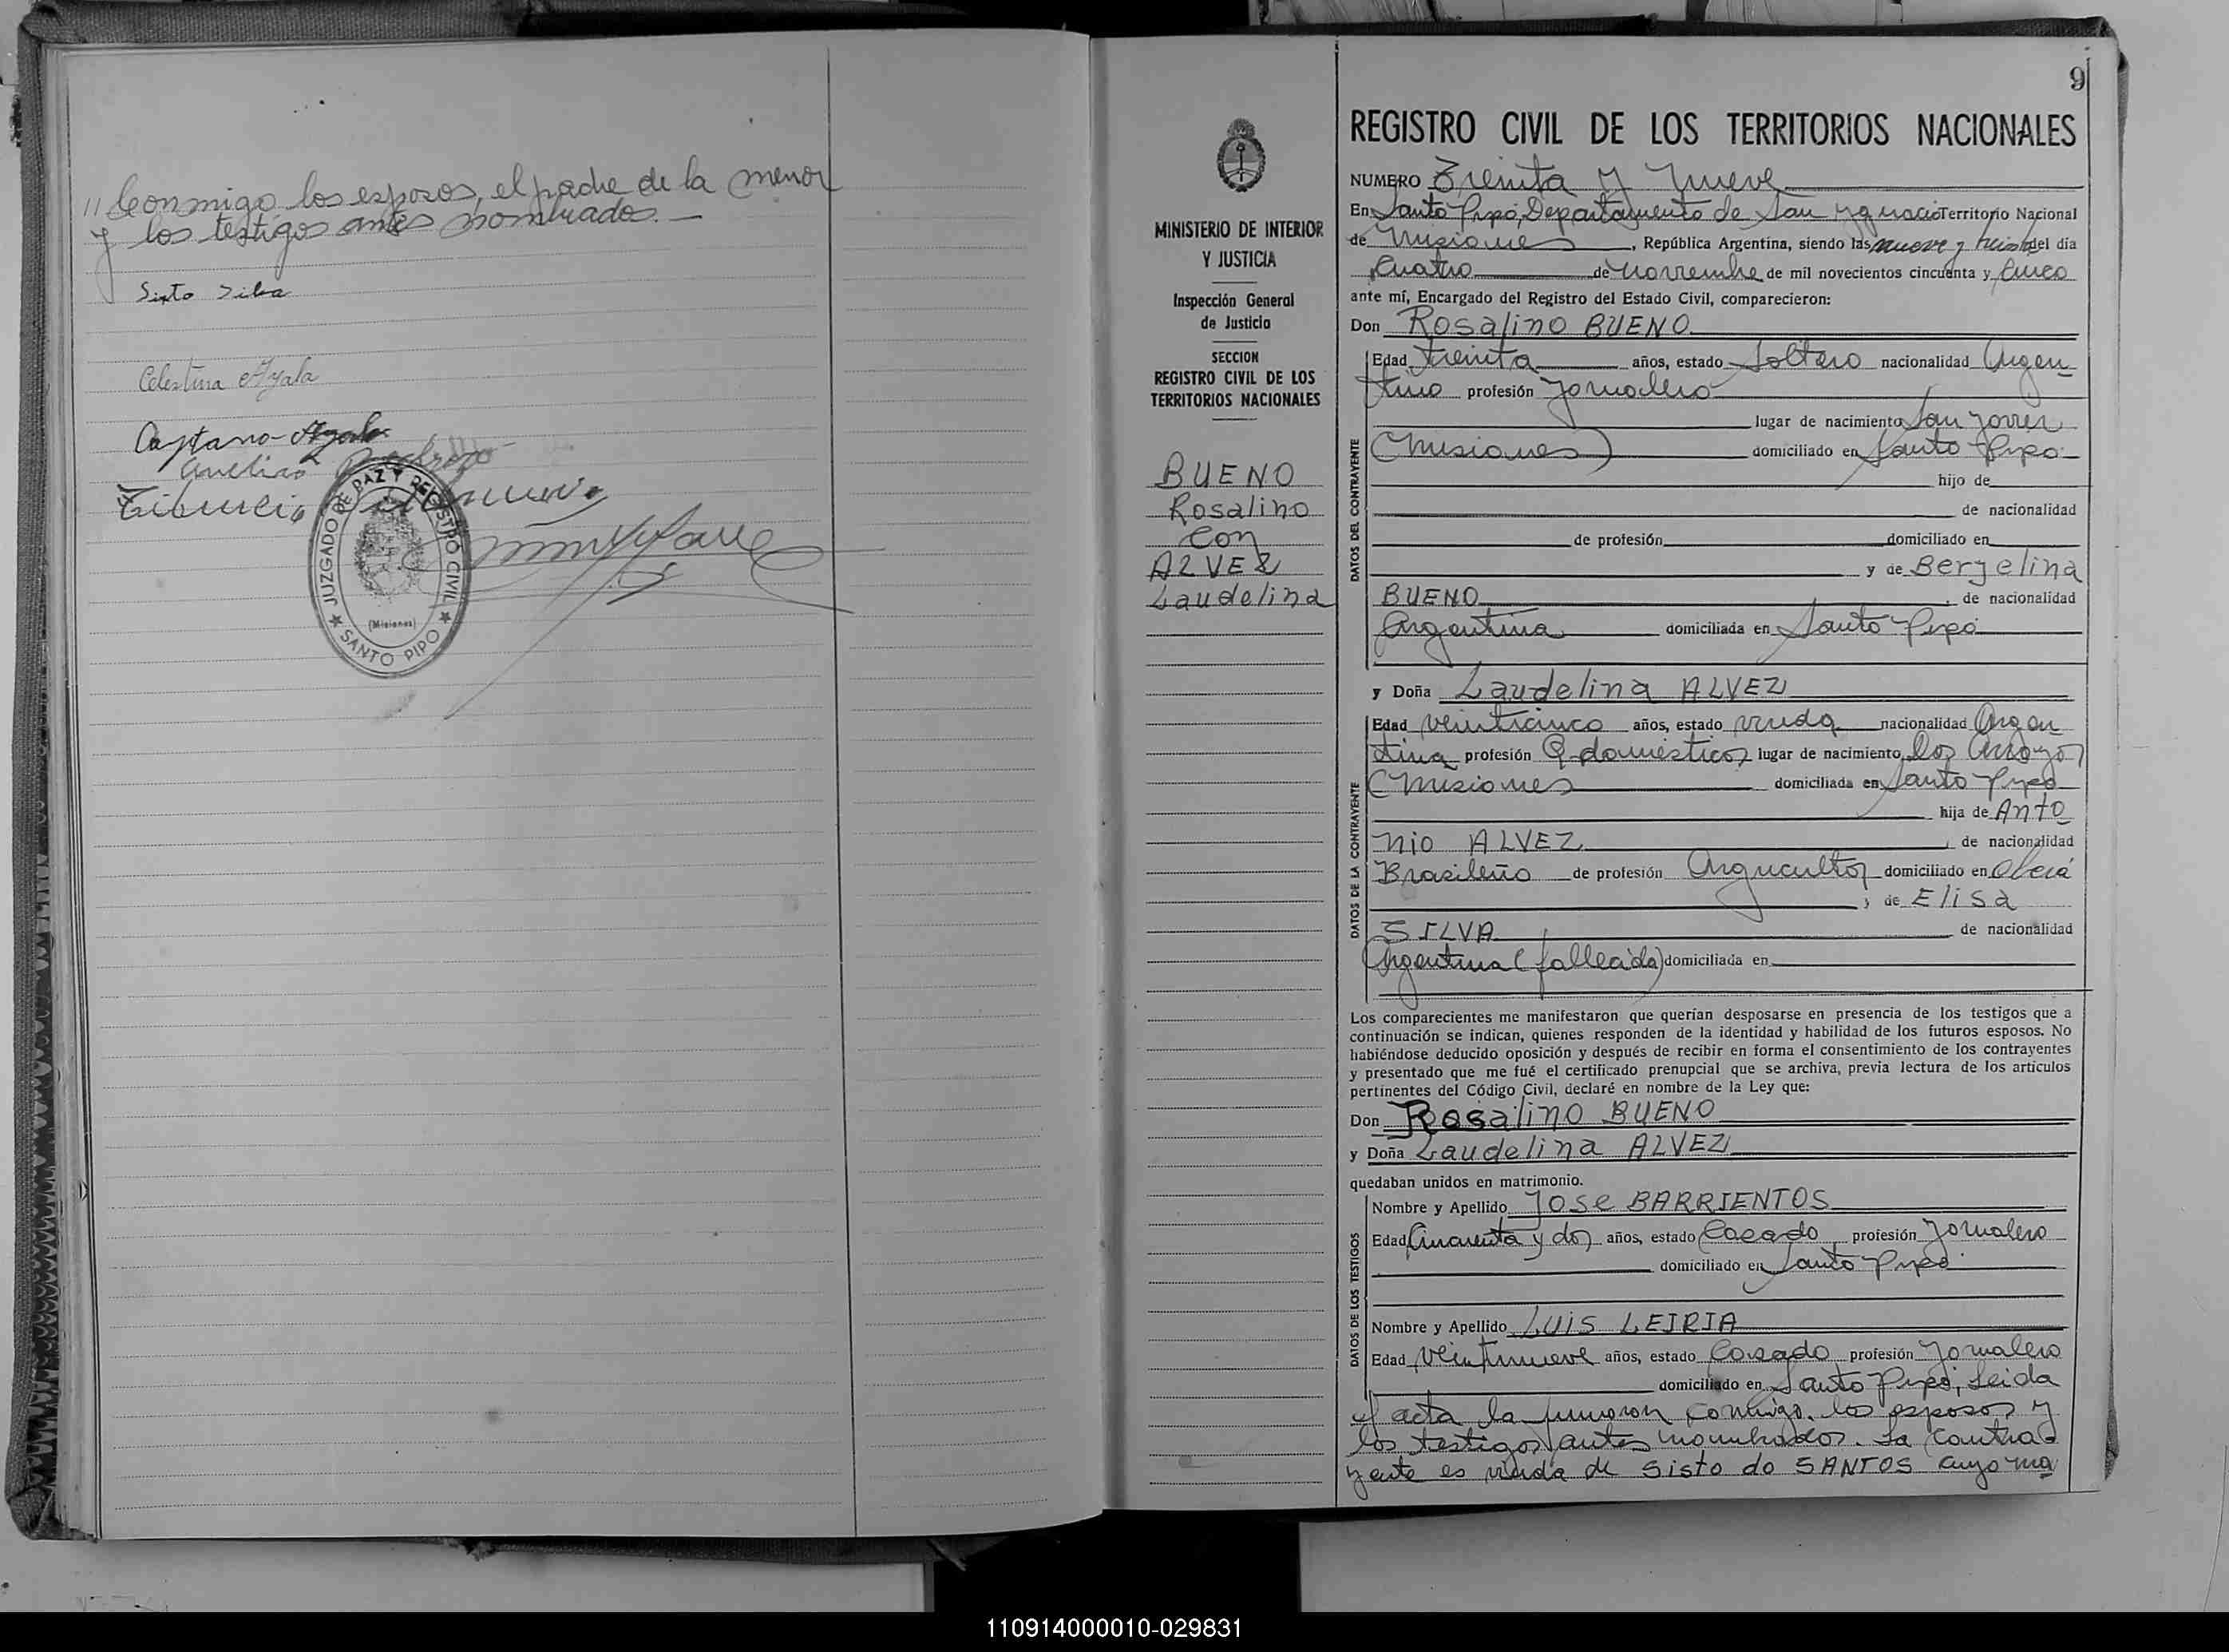 // Conmigo los esposos, el padre de la menor
y los testigos antes nombrados. —
Sixto Silva
Celestina Ayala
Caytano Ayala
Tiburcio
JUZGADO DE PAZ Y REGISTRO CIVIL
(Misiones)
★ SANTO PIPO ★
MINISTERIO DE INTERIOR
Y JUSTICIA
Inspección General
de Justicia
SECCION
REGISTRO CIVIL DE LOS
TERRITORIOS NACIONALES
BUENO
Rosalino
Con
ALVEZ
Laudelina
9
REGISTRO CIVIL DE LOS TERRITORIOS NACIONALES
NUMERO Treinta y Nueve
En Santo Pipó, Departamento de San Ygnacio Territorio Nacional
de Misiones, República Argentina, siendo las nueve y treinta del día
Cuatro de Noviembre de mil novecientos cincuenta y Cinco
ante mí, Encargado del Registro del Estado Civil, comparecieron:
Don Rosalino BUENO
DATOS DEL CONTRAYENTE
Edad treinta años, estado Soltero nacionalidad Argen
tino profesión Jornalero
lugar de nacimiento San Javier
(Misiones) domiciliado en Santo Pipo
hijo de
de nacionalidad
de profesión domiciliado en
y de Berjelina
BUENO, de nacionalidad
Argentina domiciliada en Santo Pipó
y Doña Laudelina ALVEZ
DATOS DE LA CONTRAYENTE
Edad veinticinco años, estado viuda nacionalidad Argen
tina profesión Q. domesticos lugar de nacimiento Los Arroyos
(Misiones domiciliada en Santo Pipó
hija de Anto
nio ALVEZ, de nacionalidad
Brasileño de profesión Agricultor domiciliado en Oberá
y de Elisa
SILVA de nacionalidad
Argentina (fallecida) domiciliada en
Los comparecientes me manifestaron que querían desposarse en presencia de los testigos que a
continuación se indican, quienes responden de la identidad y habilidad de los futuros esposos. No
habiéndose deducido oposición y después de recibir en forma el consentimiento de los contrayentes
y presentado que me fué el certificado prenupcial que se archiva, previa lectura de los artículos
pertinentes del Código Civil, declaré en nombre de la Ley que:
Don Rosalino BUENO
y Doña Laudelina ALVEZ
quedaban unidos en matrimonio.
DATOS DE LOS TESTIGOS
Nombre y Apellido Jose BARRIENTOS
Edad Cincuenta y dos años, estado Casado profesión Jornalero
domiciliado en Santo Pipó
Nombre y Apellido LUIS LEIRIA
Edad Veintinueve años, estado Casado profesión Jornalero
domiciliado en Santo Pipó, Leida
el acta la firmaron conmigo los esposos y
los testigos antes nombrados. La contra
yente es viuda de Sisto do SANTOS cuyo ma
110914000010-029831